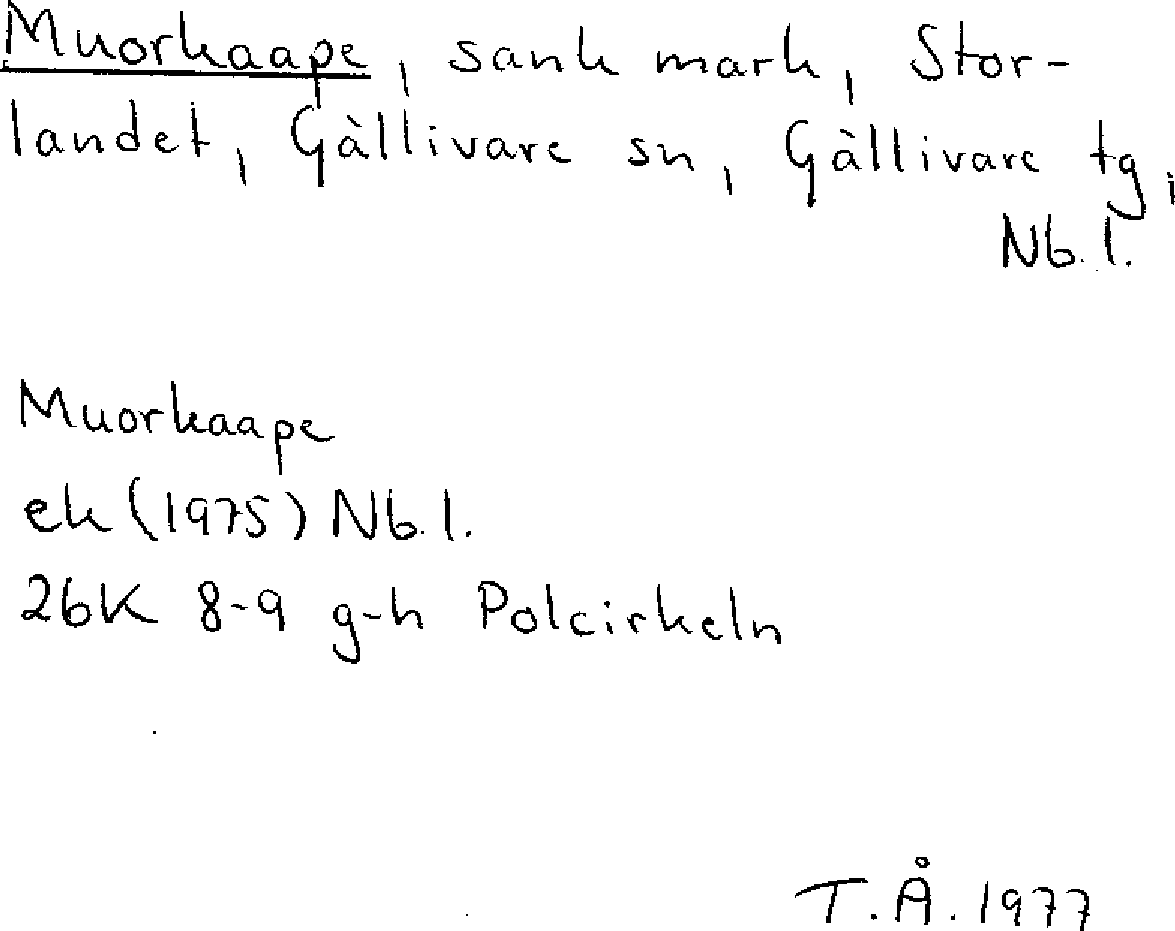 Muorkaape, sank mark, Stor-
landet, Gällivare sn, Gällivare tg,
Nb. l.
Muorkaape
ek (1975) Nb. l.
26K 8-9 g-h Polcirkeln
T.Å. 1977